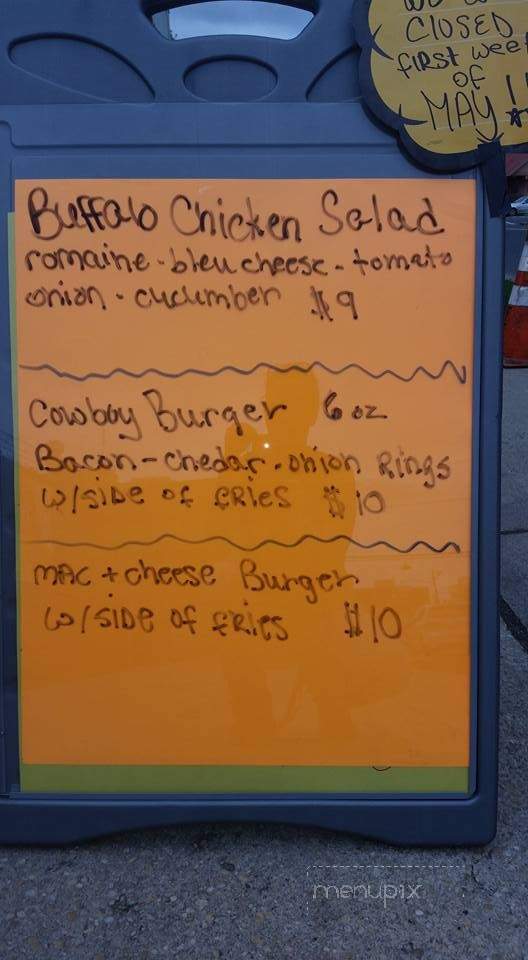 CLOSED
first week
of
MAY!
Buffalo Chicken Salad
romaine - bleu cheese - tomato
onion - cucumber $9
Cowboy Burger 6 oz
Bacon - Chedar - onion Rings
w/side of fries $10
mac + cheese Burger
w/side of fries $10
menupix